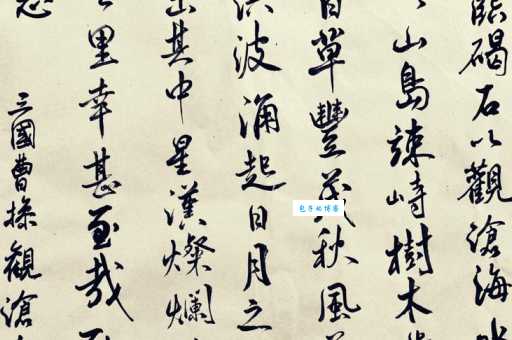 臨碣石以觀滄海水
山島竦峙樹木
百草豐茂秋風
洪波涌起日月之
出其中星漢燦爛
里幸甚至哉
志 三國曹操觀滄